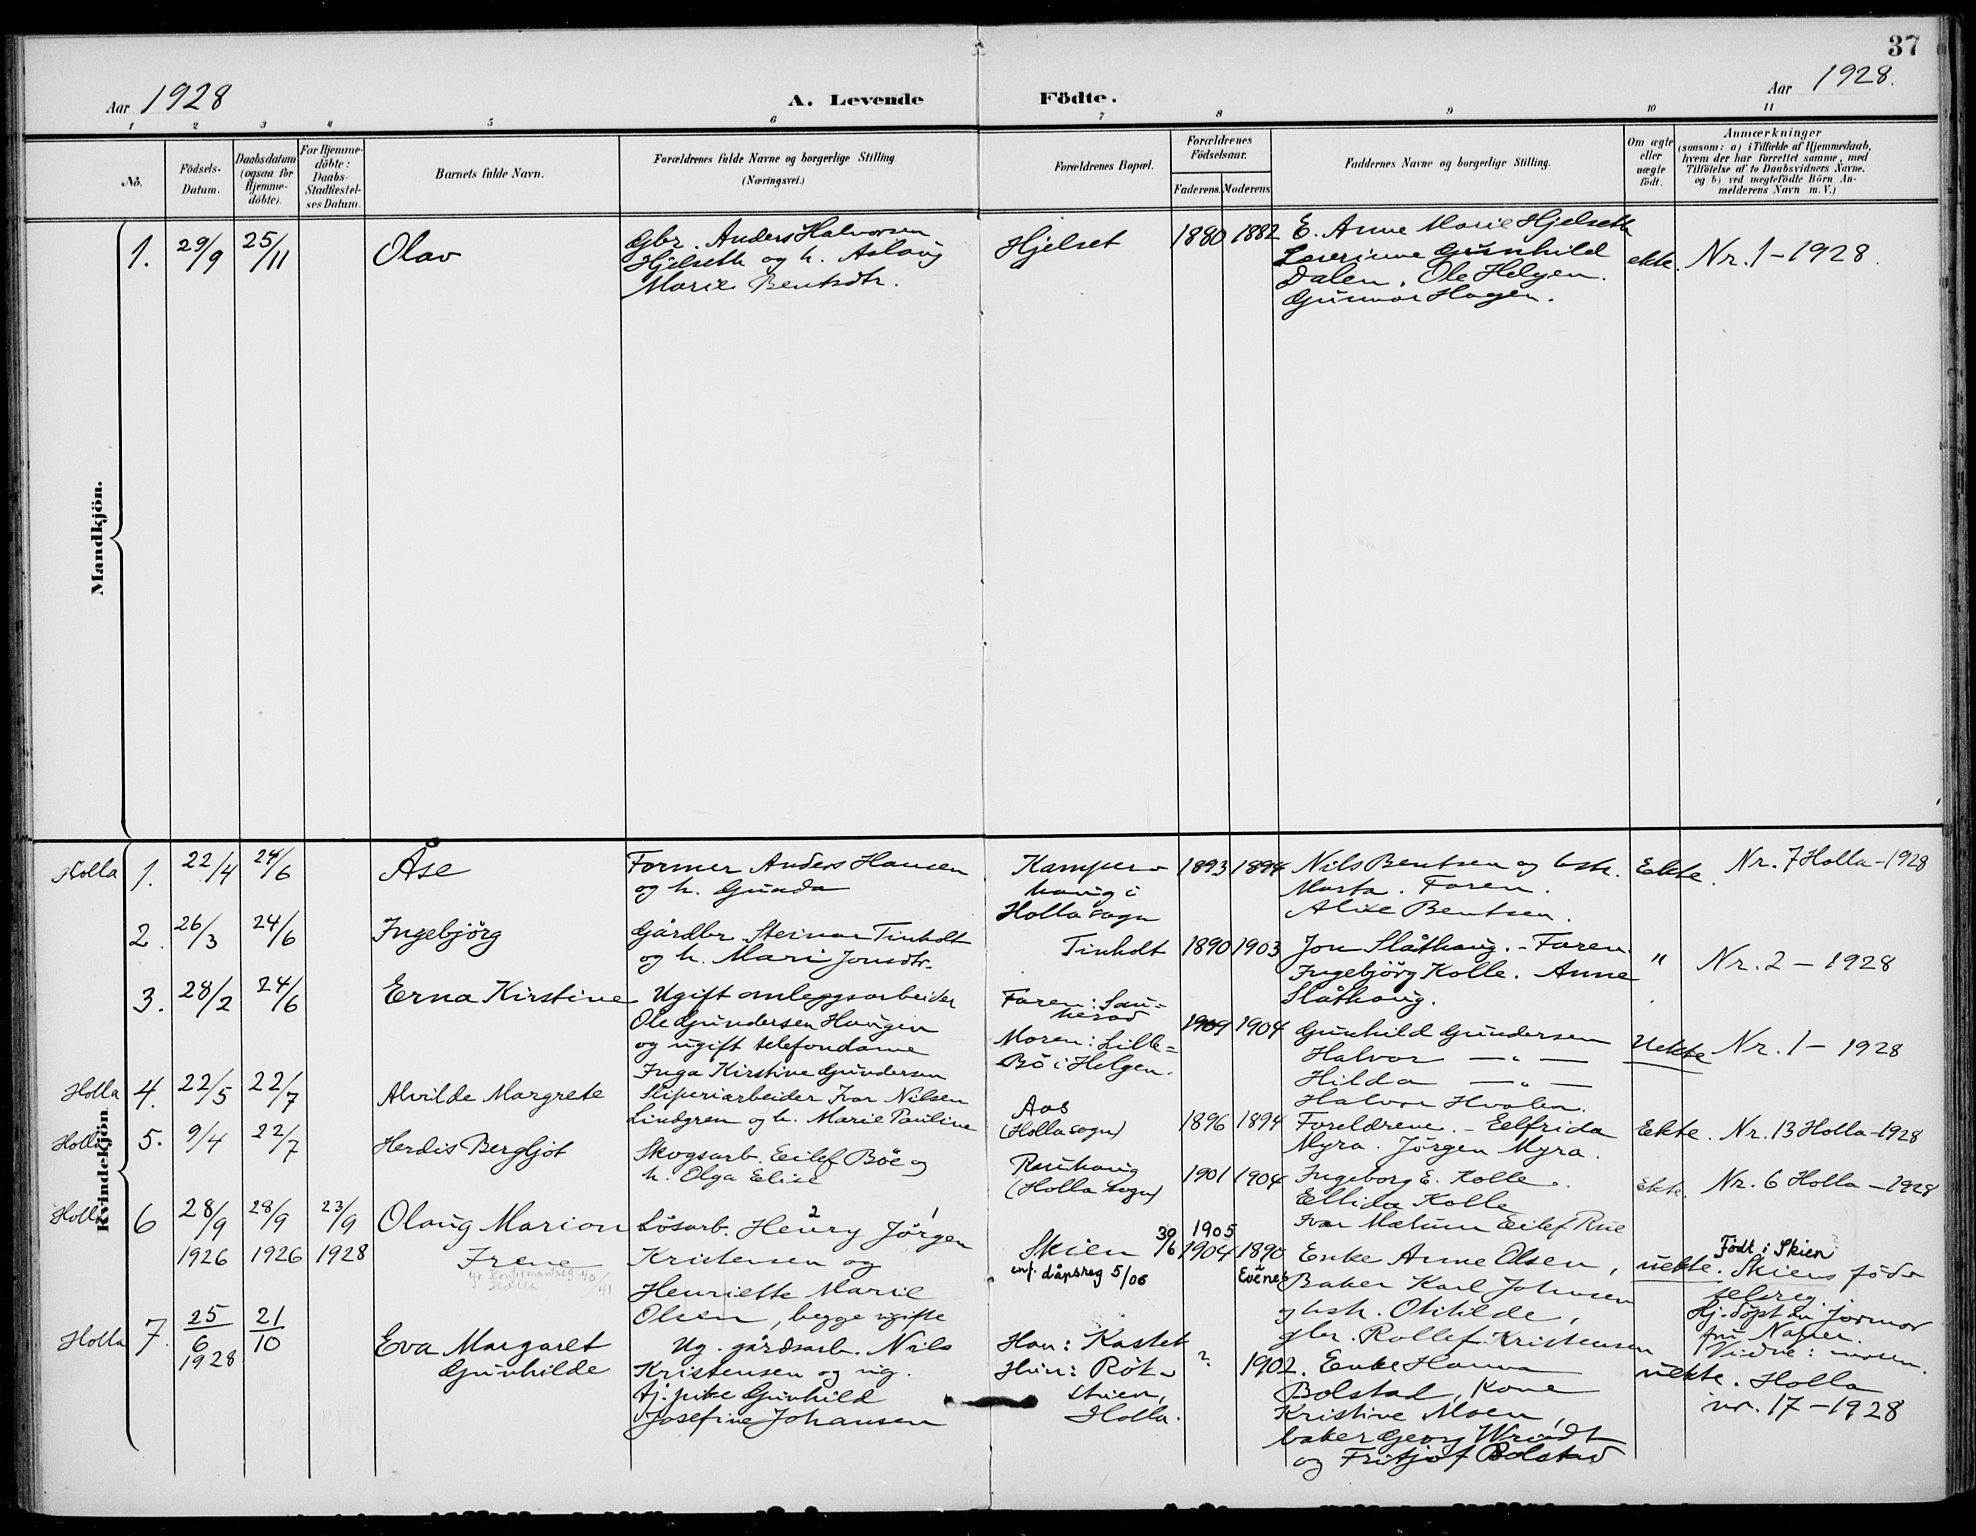 37
Aar 1928
A. Levende Födte.
Aar 1928.
1 2 3 4 5 6 7 8 9 10 11
No.
Födsels-
Datum.
Daabsdatum
(ogsaa for
Hjemme-
döbte).
For Hjemme-
döbte:
Daabs-
Stadfæstel-
ses Datum.
Barnets fulde Navn.
Forældrenes fulde Navne og borgerlige Stilling
(Næringsvei.)
Forældrenes Bopæl.
Forældrenes
Födselsaar.
Faderens. Moderens.
Faddernes Navne og borgerlige Stilling.
Om ægte
eller
uægte
födt.
Anmærkninger
(saasom: a) i Tilfælde af Hjemmedaab,
hvem der har forrettet samme, med
Tilföielse af to Daabsvidners Navne.
og b) ved uægtefödte Börn An-
melderens Navn m. V.)
Mandkjön.
1. 29/9 25/11
Olav
Gbr. Anders Halvorsen
Hjelseth og h. Aslaug
Marie Bentsdtr.
Hjelset
1880 1882
E. Anne Marie Hjelseth
Gunhild
Dalen, Ole Helgen.
Gunnar Hagen.
ekte.
Nr. 1 - 1928.
Kvindekjön.
Holla 1. 22/4 24/6
Åse
Former Anders Hansen
og h. Gunda
Kamper-
haug i
Holla sogn
1893 1894
Nils Bentsen og hstr.
Marta. Faren.
Alise Bentsen.
Ekte.
Nr. 7 Holla - 1928
2. 26/3 24/6
Ingebjörg
Gårdbr. Steinar Tinholt
og h. Mari Jonsdtr.
Tinholt
1890 1903
Jon Slåthaug. - Faren.
Ingebjörg Kolle. Anne
Slåthaug.
"
Nr. 2 - 1928
3. 28/2 24/6
Erna Kirstine
Ugift anleggsarbeider
Ole Gundersen Haugen
og ugift telefondame
Inga Kirstine Gundersen
Faren: Sau=
herad
Moren: Lille=
Bö i Helgen.
1909 1904
Gunhild Gundersen
Halvor — " —
Hilda — " —
Halvor Hvalen.
Uekte
Nr. 1 - 1928
Holla 4. 22/5 22/7
Alvilde Margrete
Sliperiarbeider Ivar Nilsen
Lindgren og h. Marie Pauline
Aas
(Holla sogn)
1896 1894
Foreldrene. - Eelfrida
Myra. Jörgen Myra.
Ekte.
Nr. 13 Holla - 1928
Holla 5. 9/4 22/7
Herdis Bergljot
Skogsarb. Eilef Böe og
h. Olga Elise
(Holla sogn)
1901 1904
Ingeborg E. Kolle.
Ellida Kolle
Ivar Mælum Eilef Rue
ekte.
Nr. 6 Holla - 1928
Holla 6 28/9 1926 28/9 1926 23/9 1928
Olaug Marion
Irene
Holla
Lösarb. Henry 2 Jörgen 1
Kristensen og
Henriette Marie
Olsen, begge ugifte
Skien
30/6 1905
1904 1890
i Evenes
inf. dåpsreg 5/06
Enke Anne Olsen,
Baker Karl Johnsen
og hstr. Otihilde,
gbr. Rollef Kristensen
uekte.
Födt i Skien
Skiens föd-
selsreg.
Hj. döpt av jormor
fru Napier.
Vidne: moren.
Holla 7. 25/6 1928 21/10
Eva Margaret
Gunhilde
Ug. gårdsarb. Nils
Kristensen og ug.
tj. pike Gunhild
Josefine Johansen
Han: Kastet
Hun: Röt-
Holla.
? 1902.
Enke Hanna
Bolstad, Kone
Kristine Moen,
baker Georg Wrindt
og Fritjof Bolstad
uekte.
Holla
nr. 17 - 1928